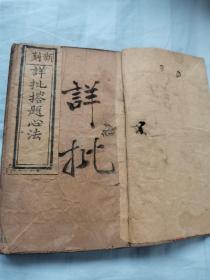 新刻
詳批搭題心法
詳批